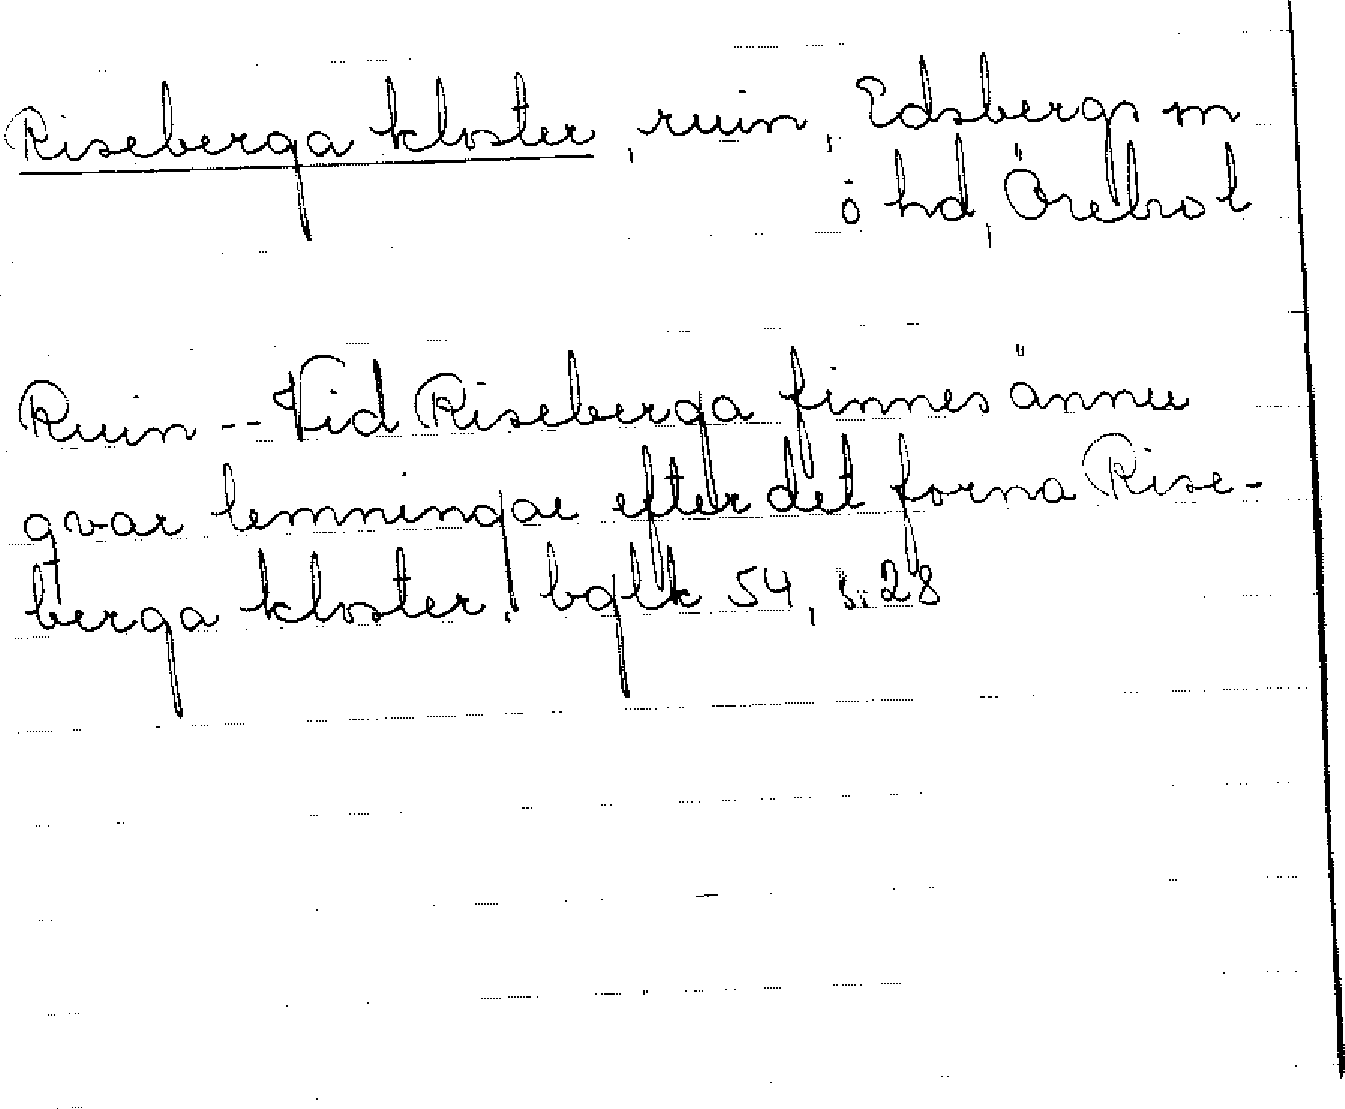 Riseberga kloster, ruin, Edsbergs m
ö hd, Örebro l
Ruin -- Vid Riseberga finnes ännu
qvar lemningar efter det forna Rise-
berga kloster. bglk 54, s. 28